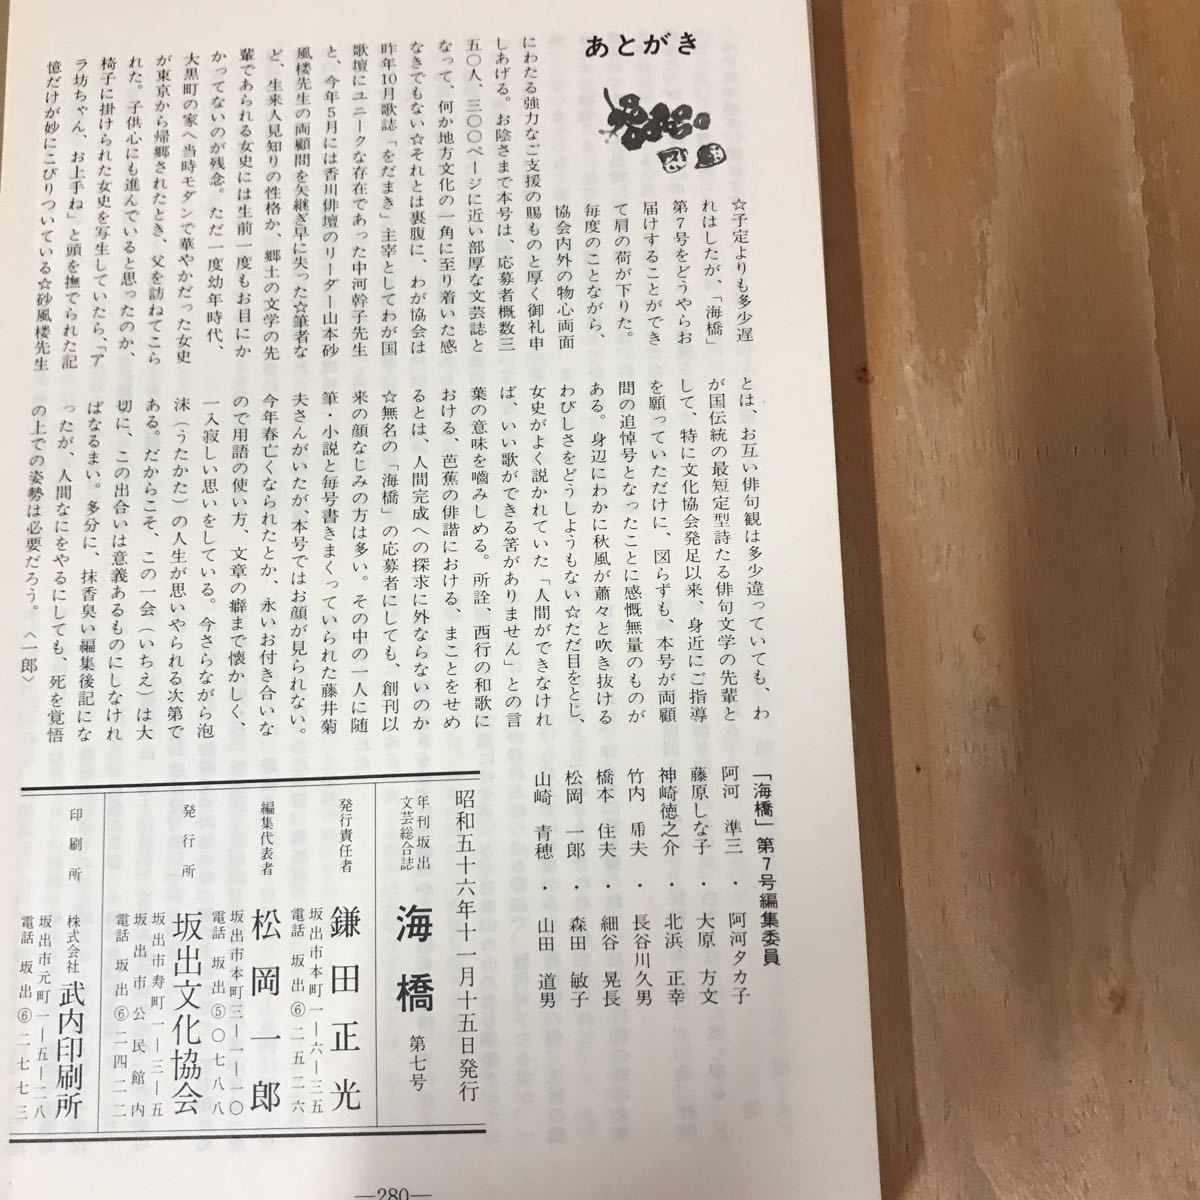 あとがき
☆予定よりも多少遅
れはしたが、「海橋」
第7号をどうやらお
届けすることができ
て肩の荷が下りた。
毎度のことながら、
協会内外の物心両面
にわたる強力なご支援の賜ものと厚く御礼申
しあげる。お陰さまで本号は、応募者概数三
五〇人、三〇〇ページに近い部厚な文芸誌と
なって、何か地方文化の一角に至り着いた感
なきでもない☆それとは裏腹に、わが協会は
昨年10月歌誌「をだまき」主宰としてわが国
歌壇にユニークな存在であった中河幹子先生
と、今年5月には香川俳壇のリーダー山本砂
風楼先生の両顧問を矢継ぎ早に失った☆筆者な
ど、生来人見知りの性格か、郷土の文学の先
輩であられる女史には生前一度もお目にか
かってないのが残念。ただ一度幼年時代、
大黒町の家へ当時モダンで華やかだった女史
が東京から帰郷されたとき、父を訪ねてこら
れた。子供心にも進んでいると思ったのか、
椅子に掛けられた女史を写生していたら、「ア
ラ坊ちゃん、お上手ね」と頭を撫でられた記
憶だけが妙にこびりついている☆砂風楼先生
とは、お互い俳句観は多少違っていても、わ
が国伝統の最短定型詩たる俳句文学の先輩と
して、特に文化協会発足以来、身近にご指導
を願っていただけに、図らずも、本号が両顧
問の追悼号となったことに感慨無量のものが
ある。身辺にわかに秋風が蕭々と吹き抜ける
わびしさをどうしようもない☆ただ目をとじ、
女史がよく説かれていた「人間ができなけれ
ば、いい歌ができる筈がありません」との言
葉の意味を嚙みしめる。所詮、西行の和歌に
おける、芭蕉の俳諧における、まことをせめ
るとは、人間完成への探求に外ならないのか
☆無名の「海橋」の応募者にしても、創刊以
来の顔なじみの方は多い。その中の一人に随
筆・小説と毎号書きまくっていられた藤井菊
夫さんがいたが、本号ではお顔が見られない。
今年春亡くなられたとか、永いお付き合いな
ので用語の使い方、文章の癖まで懐かしく、
一入寂しい思いをしている。今さらながら泡
沫(うたかた)の人生が思いやられる次第で
ある。だからこそ、この一会(いちえ)は大
切に、この出合いは意義あるものにしなけれ
ばなるまい。多分に、抹香臭い編集後記にな
ったが、人間なにをやるにしても、死を覚悟
の上での姿勢は必要だろう。〈一郎〉
「海橋」第7号編集委員
阿河 準三・阿河タカ子
藤原しな子・大原 方文
神崎徳之介・北浜 正幸
竹内 夫・長谷川久男
橋本 住夫・細谷 晃長
松岡 一郎・森田 敏子
山崎 青穂・山田 道男
昭和五十六年十一月十五日発行
年刊坂出
文芸総合誌 海橋 第七号
発行責任者 鎌田正光
坂出市本町一―六―三五
電話 坂出⑥二五二六
編集代表者 松岡一郎
坂出市本町三―一―一〇
電話 坂出⑤〇七八八
発行所 坂出文化協会
坂出市寿町一―三―五
坂出市公民館内
電話 坂出⑥二四二二
印刷所 株式会社 武内印刷所
坂出市元町一―五―二八
電話 坂出⑥二七七三
―280―